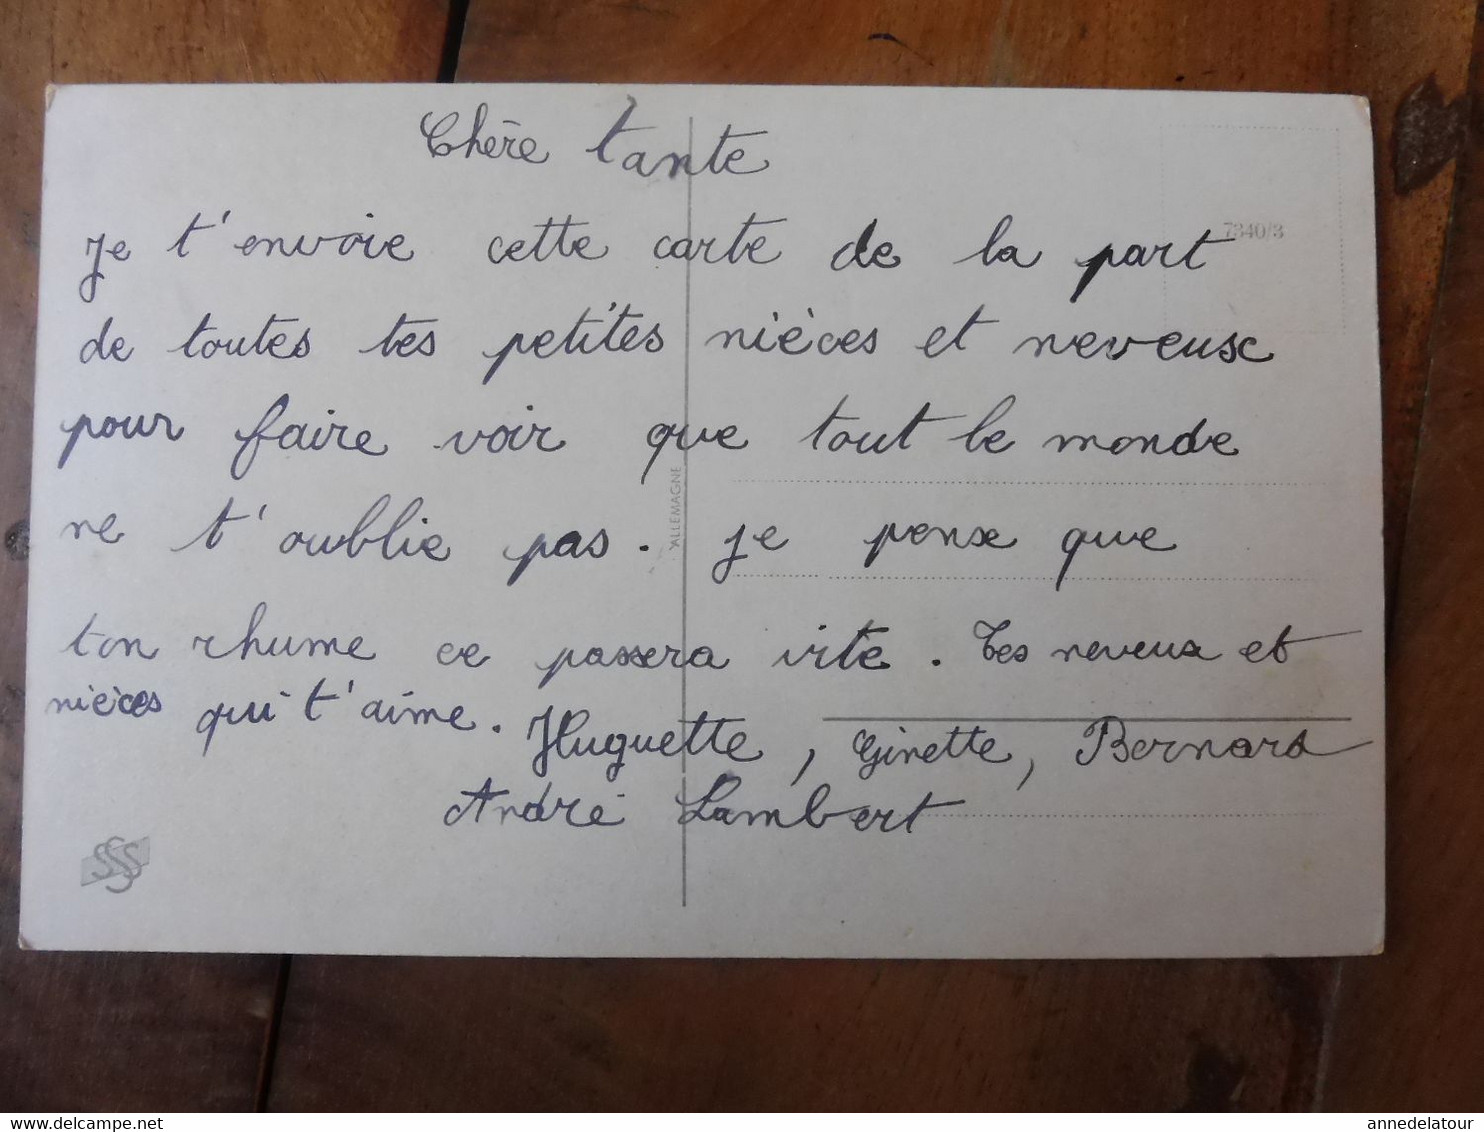 Chère tante
7340/3
Je t'envoie cette carte de la part
de toutes tes petites nièces et neveux
pour faire voir que tout le monde
ne t'oublie pas. je pense que
ALLEMAGNE
ton rhume ce passera vite. Tes neveux et
nièces qui t'aime. Huguette, Ginette, Bernard
André Lambert
SSS
delcampe.net
annedelatour